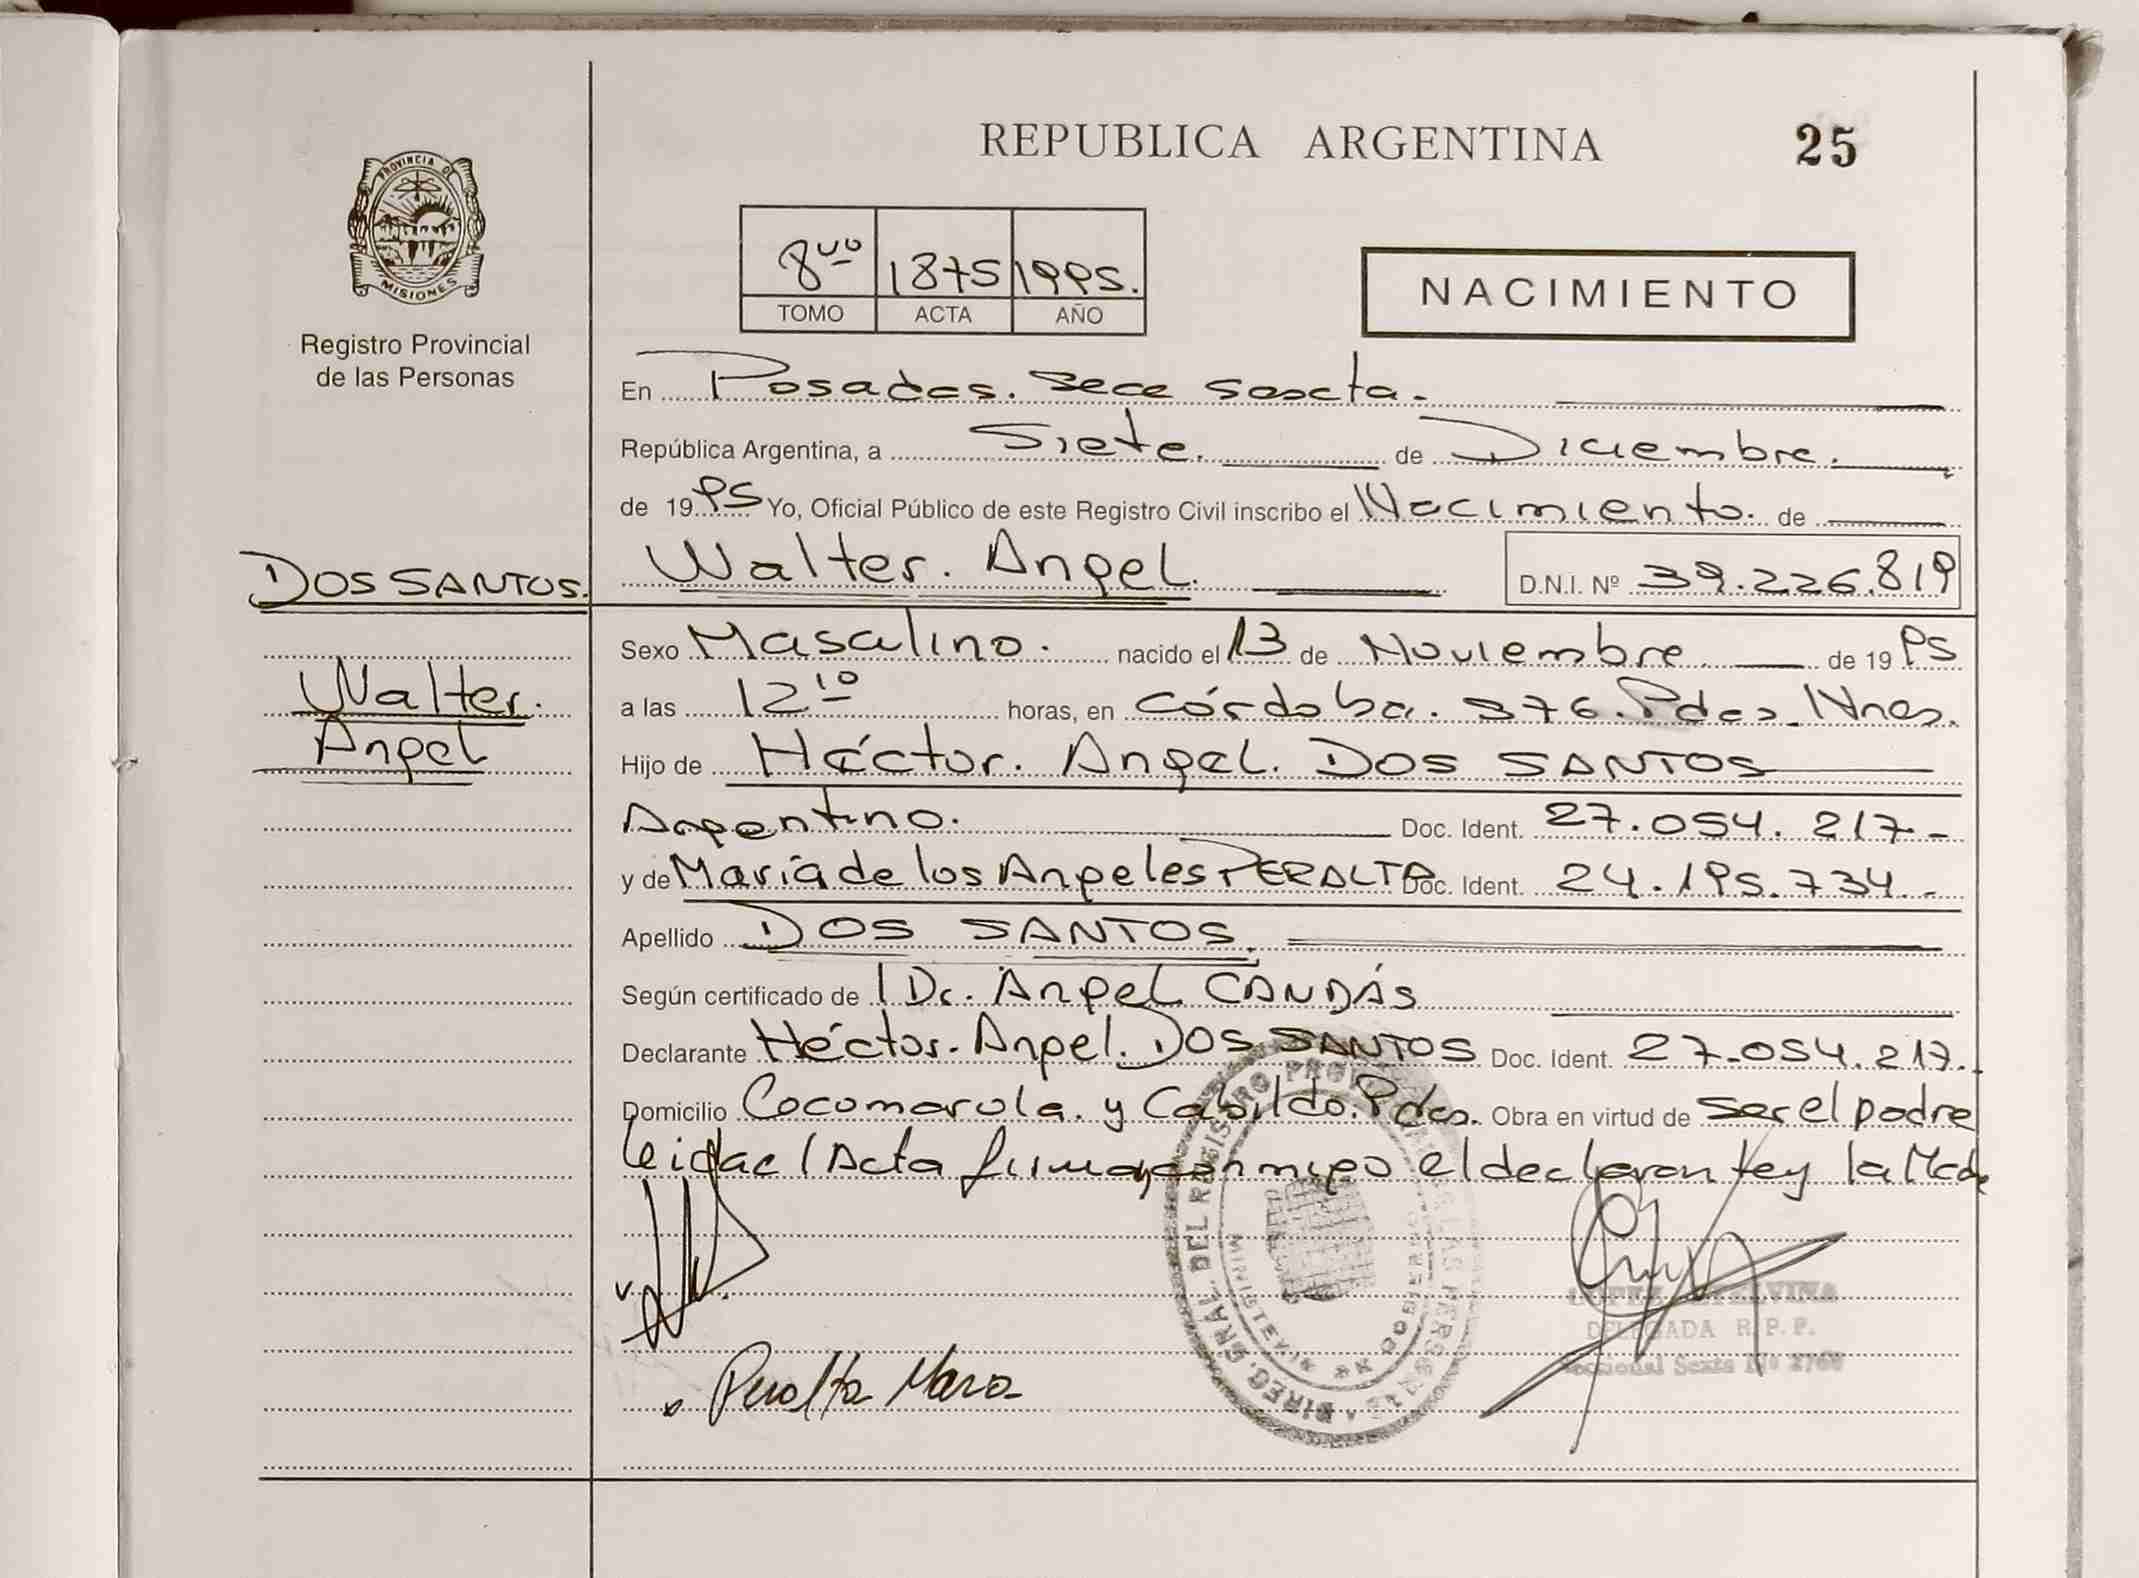 REPUBLICA ARGENTINA
25
PROVINCIA DE
MISIONES
Registro Provincial
de las Personas
8vo 1875 1995.
TOMO ACTA AÑO
NACIMIENTO
En Posadas. Secc
República Argentina, a Siete. de Diciembre.
de 1995 Yo, Oficial Público de este Registro Civil inscribo el Nacimiento. de
DOS SANTOS.
Walter.
Angel
Walter. Angel. D.N.I. Nº 39.226.819
Sexo Masculino. nacido el 13 de Noviembre de 1995
a las 12 10 horas, en Córdoba. 376. Pdas. Mnes.
Hijo de Héctor. Angel. DOS SANTOS
Argentino. Doc. Ident. 27.054.217-
y de María de los Angeles PERALTA Doc. Ident. 24.195.734-
Apellido DOS SANTOS.
Según certificado de Dr. Angel CANDÁS
Declarante Héctor. Angel. DOS SANTOS Doc. Ident. 27.054.217.
Domicilio Cocomarola. y Cabildo. Pdas. Obra en virtud de ser el padre
leida el Acta firman conmigo el declarante y la Madre
DIREC. GRAL. DEL REGISTRO PROV. DE LAS PERSONAS
MINISTERIO DE GOBIERNO
LOPEZ ETELVINA
DELEGADA R.P.P.
Seccional Sexta Nº 2768
Peralta Maria